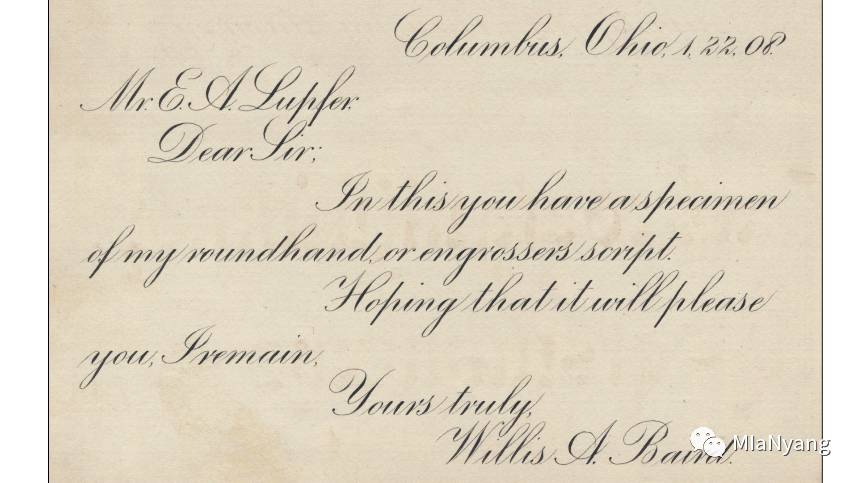 Columbus, Ohio, 1, 22, 08.
Mr. E. A. Lupfer.
Dear Sir;
In this you have a specimen
of my roundhand, or engrossers script.
Hoping that it will please
you, I remain,
Yours truly,
Willis A. Baird.
MlaNyang